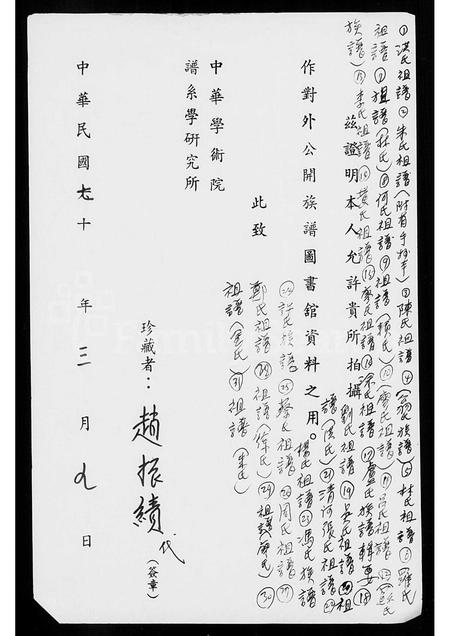 ①洪氏祖譜②朱氏祖譜(附有手抄本)③陳氏祖譜④翁族譜⑤林氏祖譜⑥羅氏
祖譜⑦祖譜(林氏)⑧何氏祖譜⑨祖譜(賴氏)⑩(廖氏祖譜)⑪呂氏祖譜
族譜)⑬李氏祖譜⑭黃氏祖譜⑮蔡氏祖譜⑯涂氏祖譜⑰盧氏族譜輯要⑱
茲證明本人允許貴所拍攝劉氏祖譜⑲吳氏祖譜⑳祖
譜(洪氏)㉑清河張氏祖譜
作對外公開族譜圖書館資料之用。楊氏祖譜㉓馮氏族譜
㉔許氏族譜㉕蔡氏祖譜㉖周氏祖譜㉗
此致
鄭氏祖譜㉘祖譜(徐氏)㉙祖譜(廖氏)㉚
中華學術院
祖譜(余氏)㉛祖譜(朱氏)
譜系學研究所
珍藏者:趙振績代(簽章)
中華民國七十年三月九日